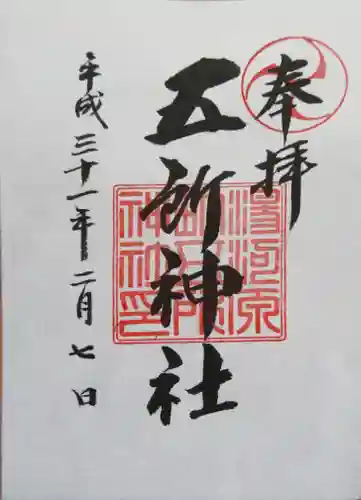 奉拝
五所神社
平成三十一年二月七日
湯河原
五所
神社印